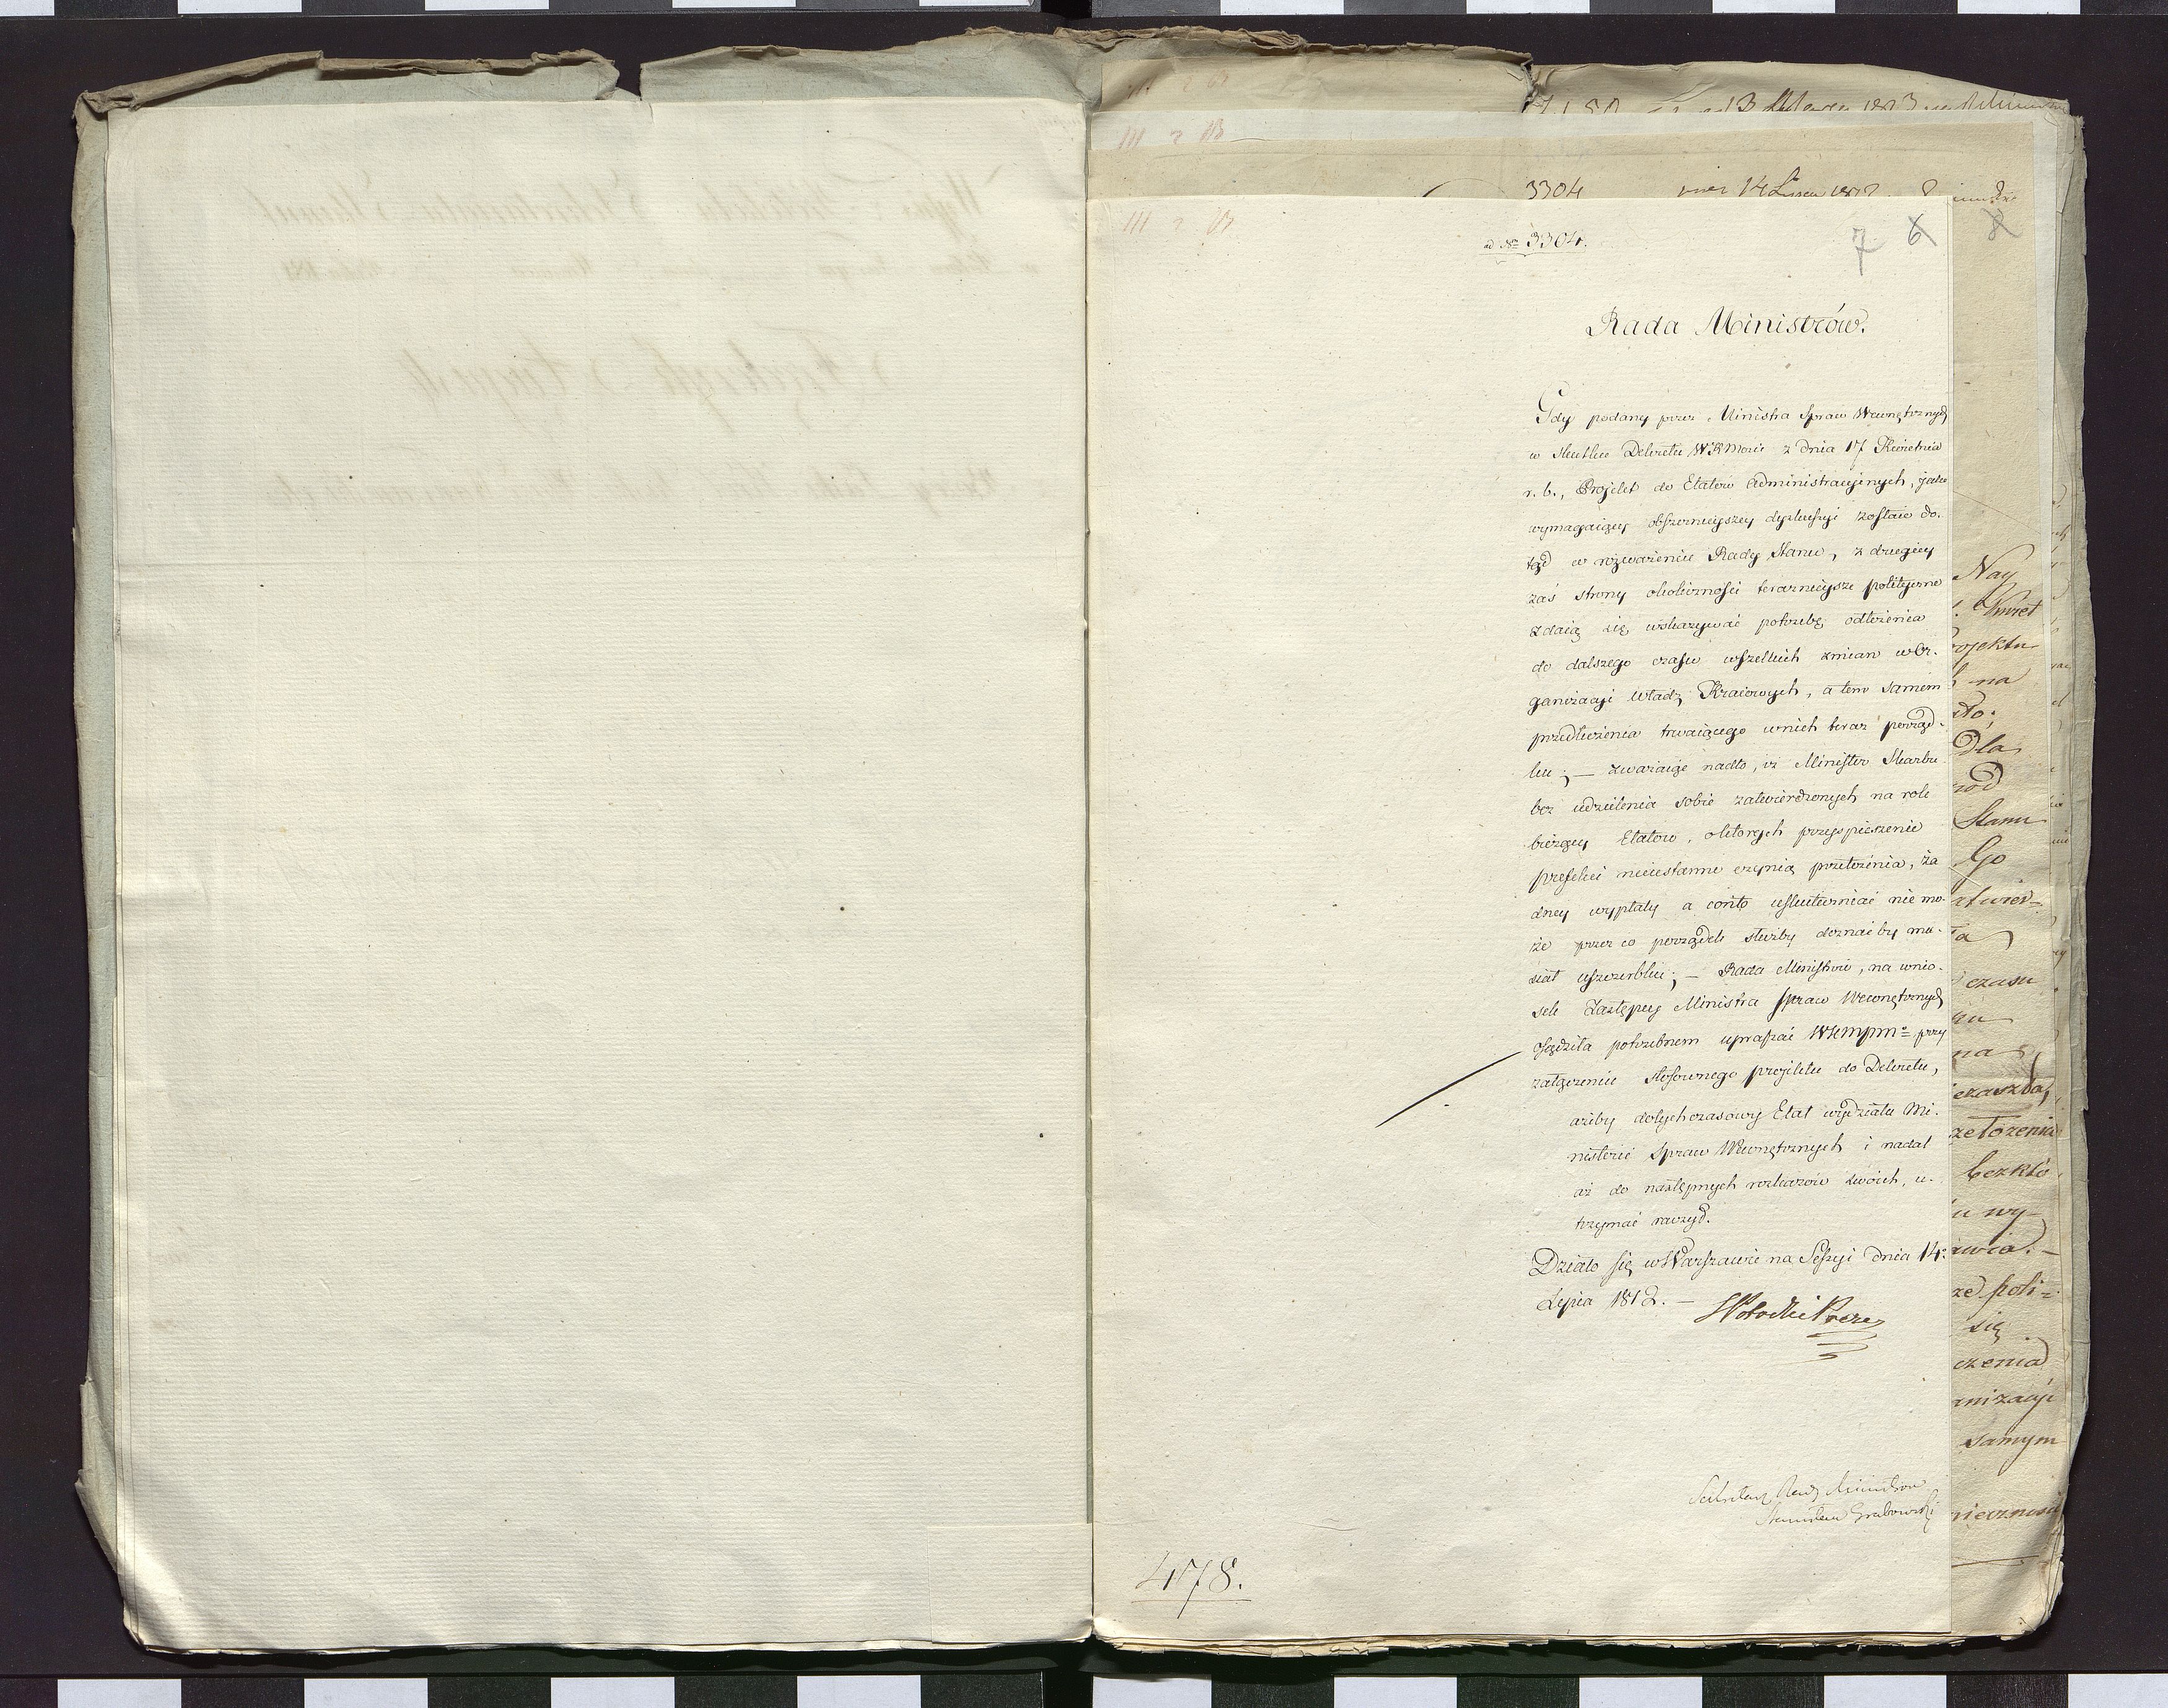 3304
III 2 B
ad Nro 3304.
7 6 8
Rada Ministrów.
Gdy podany przez Ministra Spraw Wewnętrznych
w skutku Dekretu WKMości z dnia 17 Kwietnia
r. b., Projekt do Etatow Administracyinych, jako
wymagaiący obszernieyszey dyskusyi zostaie do-
tąd w rozważeniu Rady Stanu, z drugiey
zaś strony okoliczności teraznieysze polityczne
zdaią się wskazywać potrzebę odłożenia
do dalszego czasu wszelkich zmian w Or-
ganizacyi Władz Kraiowych, a tem samem
przedłużenia trwaiącego w nich teraz porząd-
ku; — zważaiąc nadto, iż Minister Skarbu
bez udzielenia sobie zatwierdzonych na rok
bieżący Etatow, o których przyspieszenie
Prefekci nieustanne czynią przełożenia, ża
dney wypłaty a conto uskuteczniać nie mo-
że przez co porządek służby doznaćby mu-
siał uszczerbku; — Rada Ministrów, na wnio-
sek Zastępcy Ministra Spraw Wewnętrznych
osądziła potrzebnem upraszać WKMPM= przy
załączeniu stosownego projektu do Dekretu,
ażeby dotychczasowy Etat wydziału Mi-
nisterii Spraw Wewnętrznych i nadal
aż do następnych rozkazów swoich, u-
trzymać raczył.
Działo się w Warszawie na Sessyi dnia 14.
Lipca 1812. —
Sekretarz Rady Ministrow
Stanisław Grabowski
478.
Nay
Kwiet
rojektu
na
zło;
Dla
rod
Stanu
Go
atwier=
ta
czasu
na
zełożenia
bezktó
u wy-
awia. —
ze poli=
się
czenia
anizacyi
samym